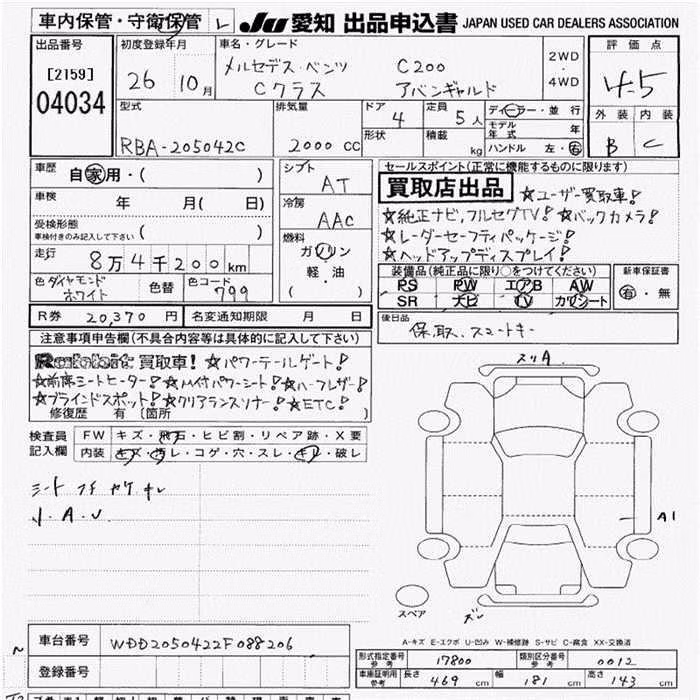 車内保管・守衛保管 JU 愛知 出品申込書 JAPAN USED CAR DEALERS ASSOCIATION
出品番号 初度登録年月 車名・グレード 評価点
[2159] 26 10月 メルセデス・ベンツ C200 2WD
04034 Cクラス アバンギャルド 4WD 4.5
型式 排気量 ドア 4 定員 5人 ディーラー・並行 外装 内装
RBA-205042C 2000 CC 形状 積載 kg モデル年式 年 B C
ハンドル 左・右
車歴 自家用・( ) シフト AT セールスポイント(正常に機能するものに限ります)
車検 年 月( 日) 冷房 AAC 買取店出品 ☆ユーザー買取車!
☆純正ナビ,フルセグTV! ☆バックカメラ!
受検形態 車検付きのみ記入して下さい ( ) 燃料 ガソリン ☆レーダーセーフティパッケージ!
走行 8万4千200km 軽・油 ☆ヘッドアップディスプレイ!
色 ダイヤモンドホワイト 色替 色コード 799 ( )
装備品(純正品に限り○をつけてください) 新車保証書
PS PW エアB AW 有・無
SR ナビ TV カワシート
R券 20,370円 名変通知期限 月 日 後日品
保、取、スマートキー
注意事項申告欄(不具合内容等は具体的に記入して下さい)
買取車! ☆パワーテールゲート!
☆前席シートヒーター! ☆メイキパワーシート! ☆ハーフレザー!
☆ブラインドスポット! ☆クリアランスソナー! ☆ETC!
修復歴 有 〔箇所 〕
スリA
検査員記入欄 FW キズ・飛石・ヒビ割・リペア跡・X要
内装 キズ・汚レ・コゲ・穴・スレ・キレ・破レ
A1
スペア
A-キズ E-エクボ U-凹み W-補修跡 S-サビ C-腐食 XX-交換済
車台番号 WDD2050422F088206
登録番号
形式指定番号 参考 17800 類別区分番号 参考 0012
車庫証明用 参考 長さ 469 cm 幅 181 cm 高さ 143 cm